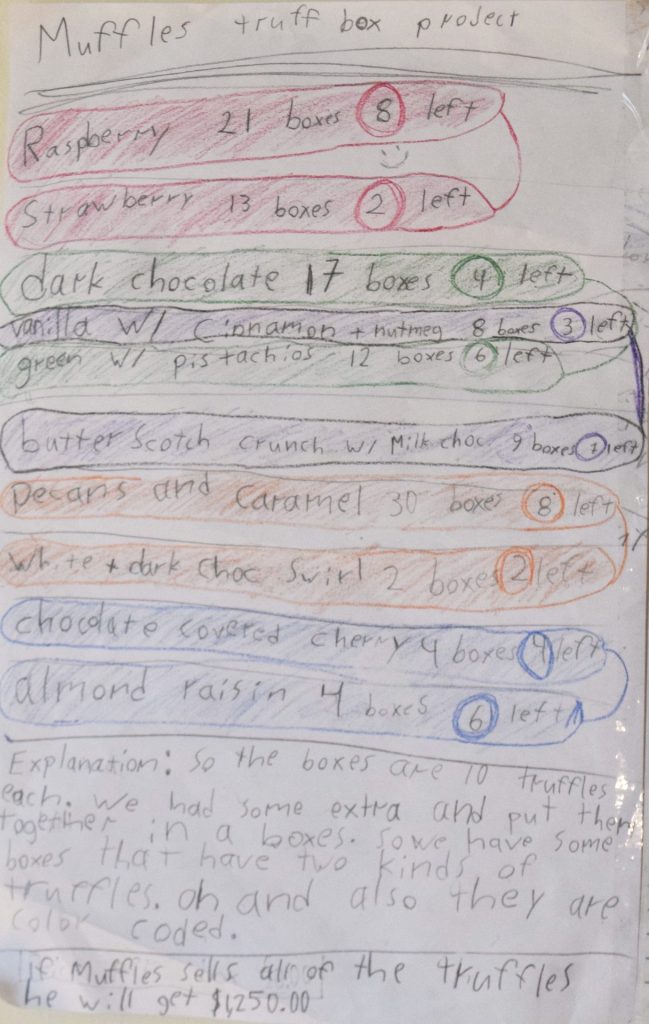 Muffles truff box project
Raspberry 21 boxes 8 left
Strawberry 13 boxes 2 left
dark chocolate 17 boxes 4 left
vanilla w/ cinnamon + nutmeg 8 boxes 3 left
green w/ pistachios 12 boxes 6 left
butterscotch crunch w/ Milk choc 9 boxes 7 left
pecans and caramel 30 boxes 8 left
white + dark choc swirl 2 boxes 2 left
chocolate covered cherry 4 boxes 4 left
almond raisin 4 boxes 6 left
Explanation: so the boxes are 10 truffles
each. we had some extra and put them
together in a boxes. so we have some
boxes that have two kinds of
truffles. oh and also they are
color coded.
If Muffles sells all of the truffles
he will get $1,250.00